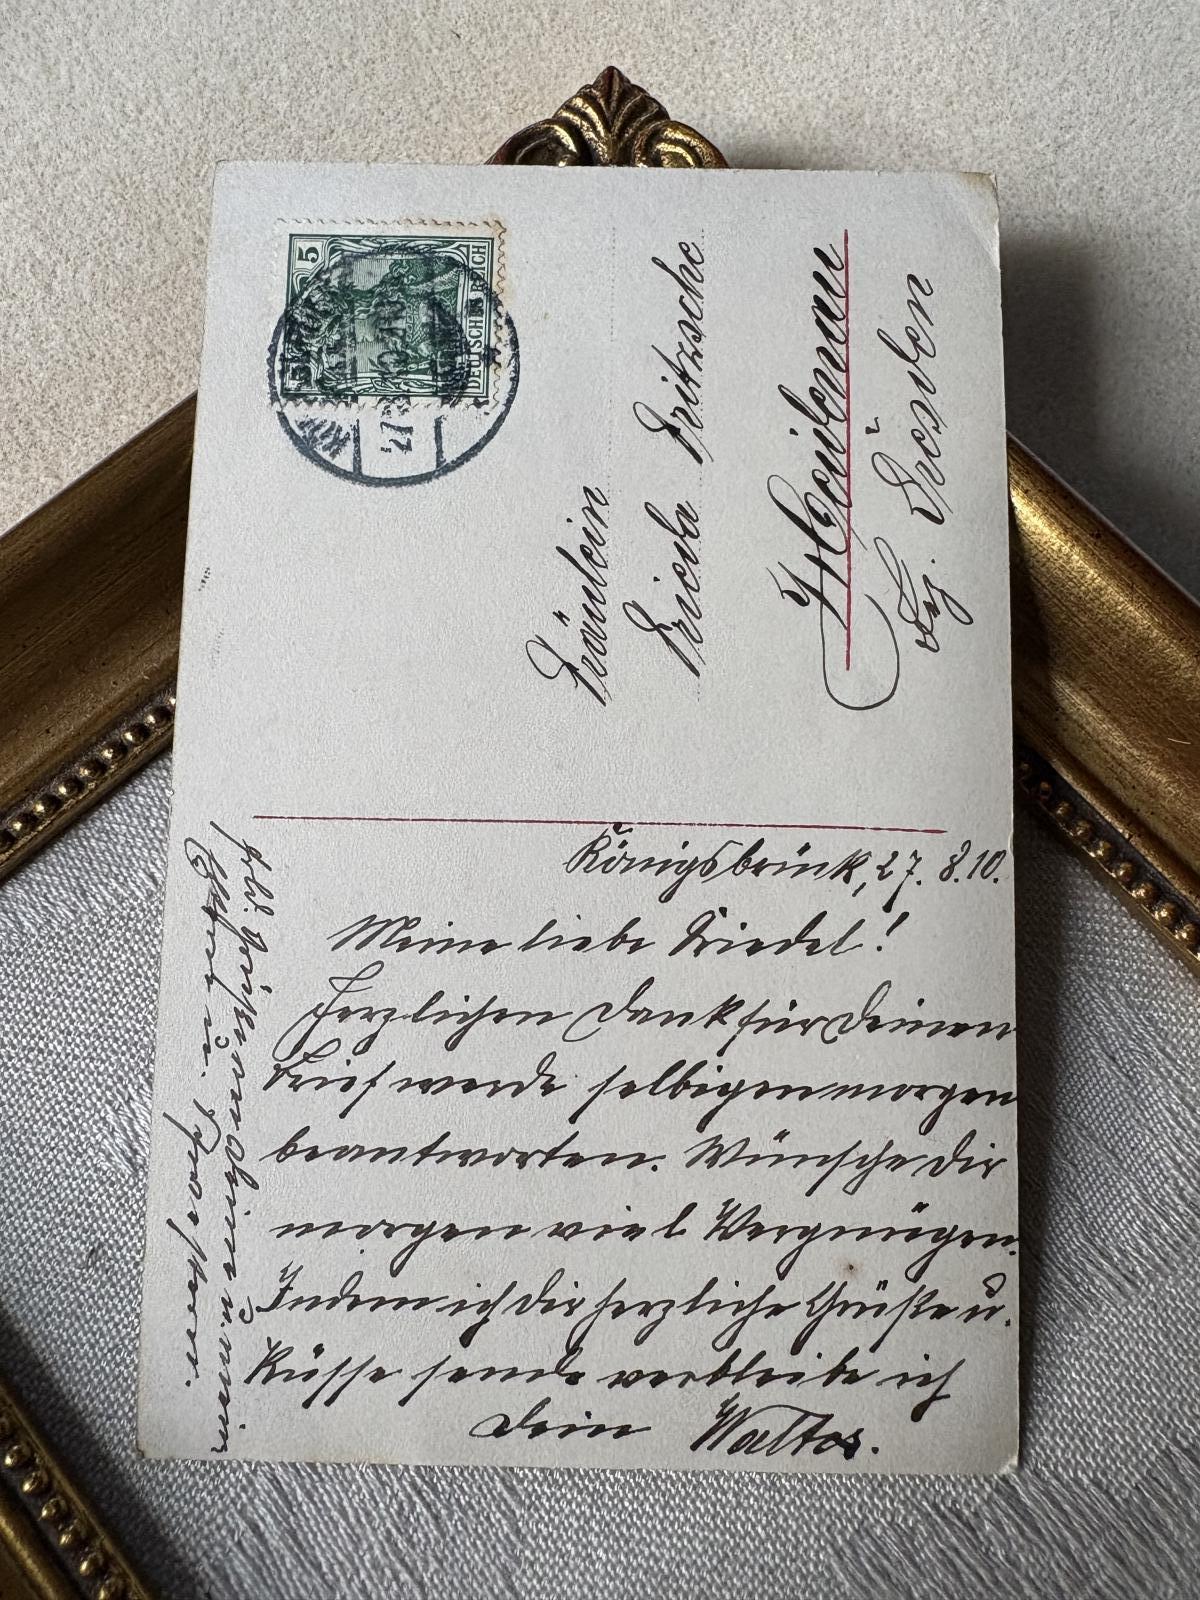 5
DEUTSCHES REICH
5
27. 8.
Fräulein
Frieda Fritzsche
Weinböhla
Königsbrück, 27. 8. 10.
Meine liebe Friedel!
Herzlichen Dank für Deinen
Brief werde selbigen morgen
beantworten. Wünsche Dir
morgen viel Vergnügen.
Indem ich Dir herzliche Grüße u.
Küsse sende verbleibe ich
Dein Walter.